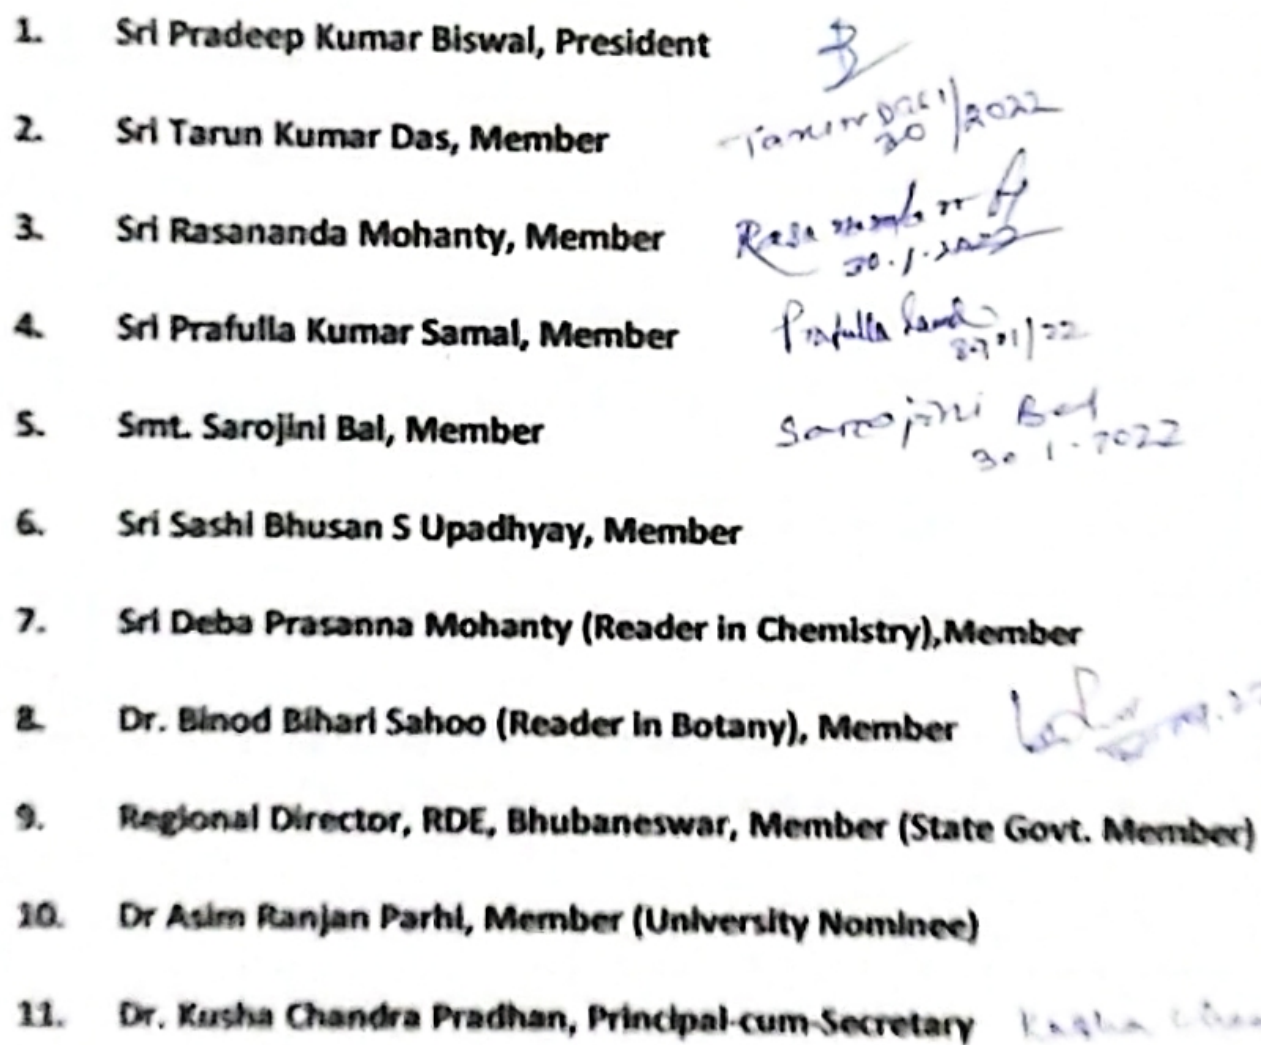 1. Sri Pradeep Kumar Biswal, President
2. Sri Tarun Kumar Das, Member
Tarun Das
30/1/2022
3. Sri Rasananda Mohanty, Member
30.1.2022
4. Sri Prafulla Kumar Samal, Member
Prafulla Samal
30/01/22
5. Smt. Sarojini Bal, Member
Sarojini Bal
30.1.2022
6. Sri Sashi Bhusan S Upadhyay, Member
7. Sri Deba Prasanna Mohanty (Reader in Chemistry),Member
8. Dr. Binod Bihari Sahoo (Reader in Botany), Member
9. Regional Director, RDE, Bhubaneswar, Member (State Govt. Member)
10. Dr Asim Ranjan Parhi, Member (University Nominee)
11. Dr. Kusha Chandra Pradhan, Principal-cum-Secretary
Kusha